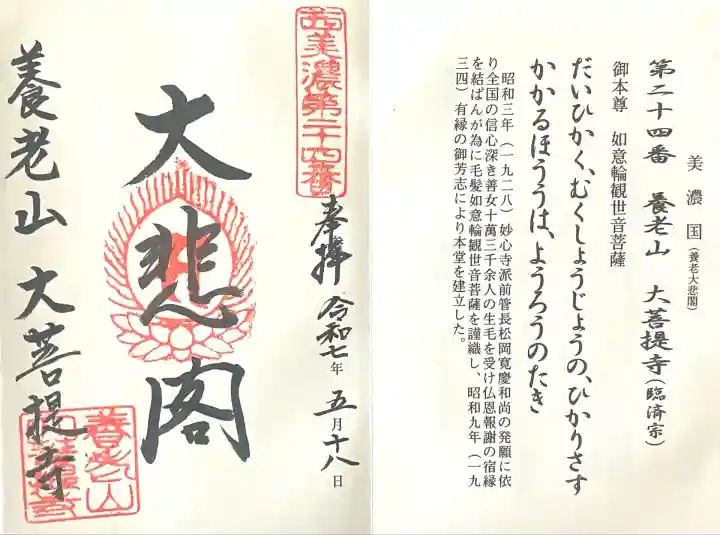 美濃国(養老大悲閣)
第二十四番 養老山 大菩提寺(臨済宗)
御本尊 如意輪観世音菩薩
だいひかく、むくしょうじょうの、ひかりさす
かかるほううは、ようろうのたき
昭和三年(一九二八)妙心寺派前管長松岡寛慶和尚の発願に依
り全国の信心深き善女十萬三千余人の生毛を受け仏恩報謝の宿縁
を結ばんが為に毛髪如意輪観世音菩薩を謹織し、昭和九年(一九
三四)有縁の御芳志により本堂を建立した。
西美濃第二十四番
奉拝 令和七年 五月十八日
大悲閣
養老山 大菩提寺
養老山